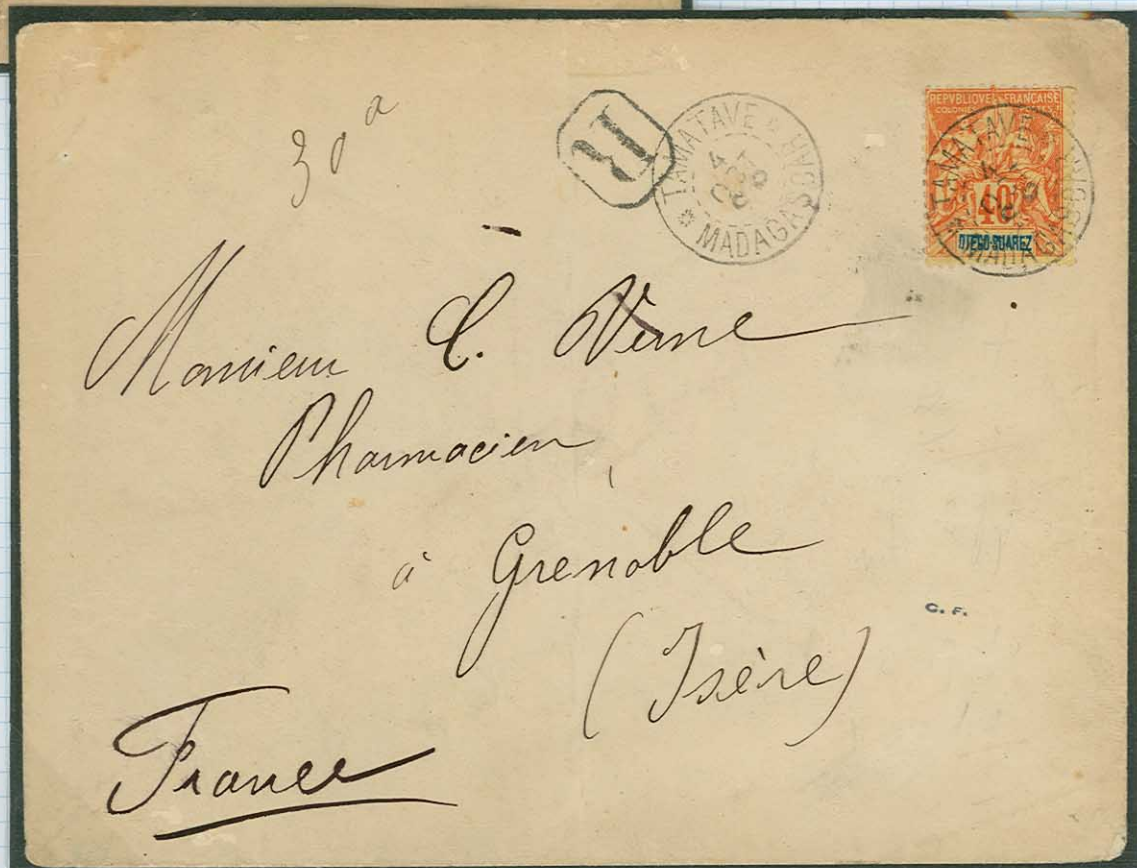 30 a
R
TAMATAVE * MADAGASCAR
4 OCT
REPVBLIQVE FRANÇAISE
COLONIES POSTES
40
DIEGO-SUAREZ
TAMATAVE MADAGASCAR
Monsieur C. Verne
Pharmacien
à Grenoble
(Isère)
C. F.
France